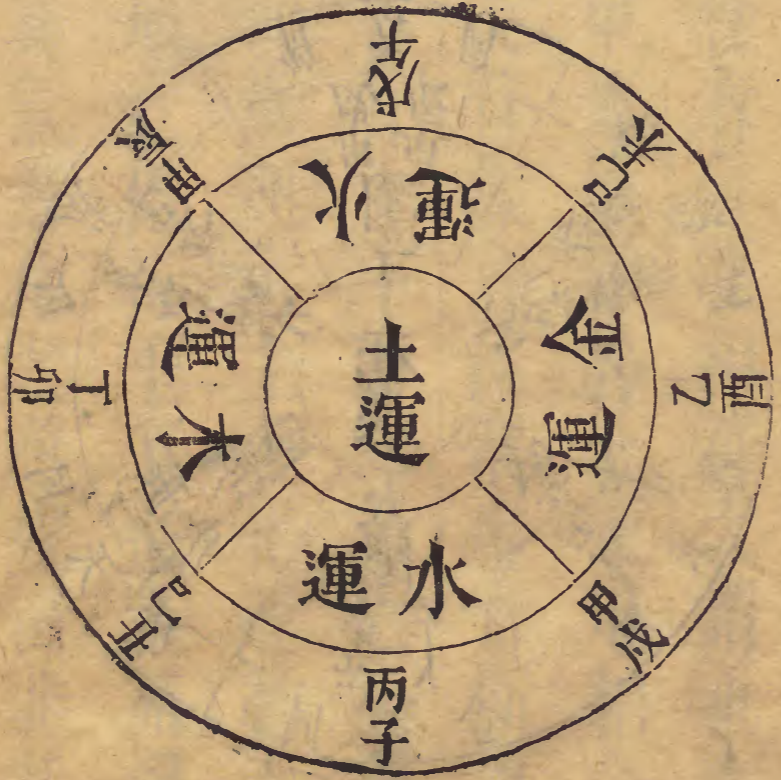 土運
火運
金運
水運
木運
戊午
己未
乙酉
甲戌
丙子
己丑
丁卯
甲辰